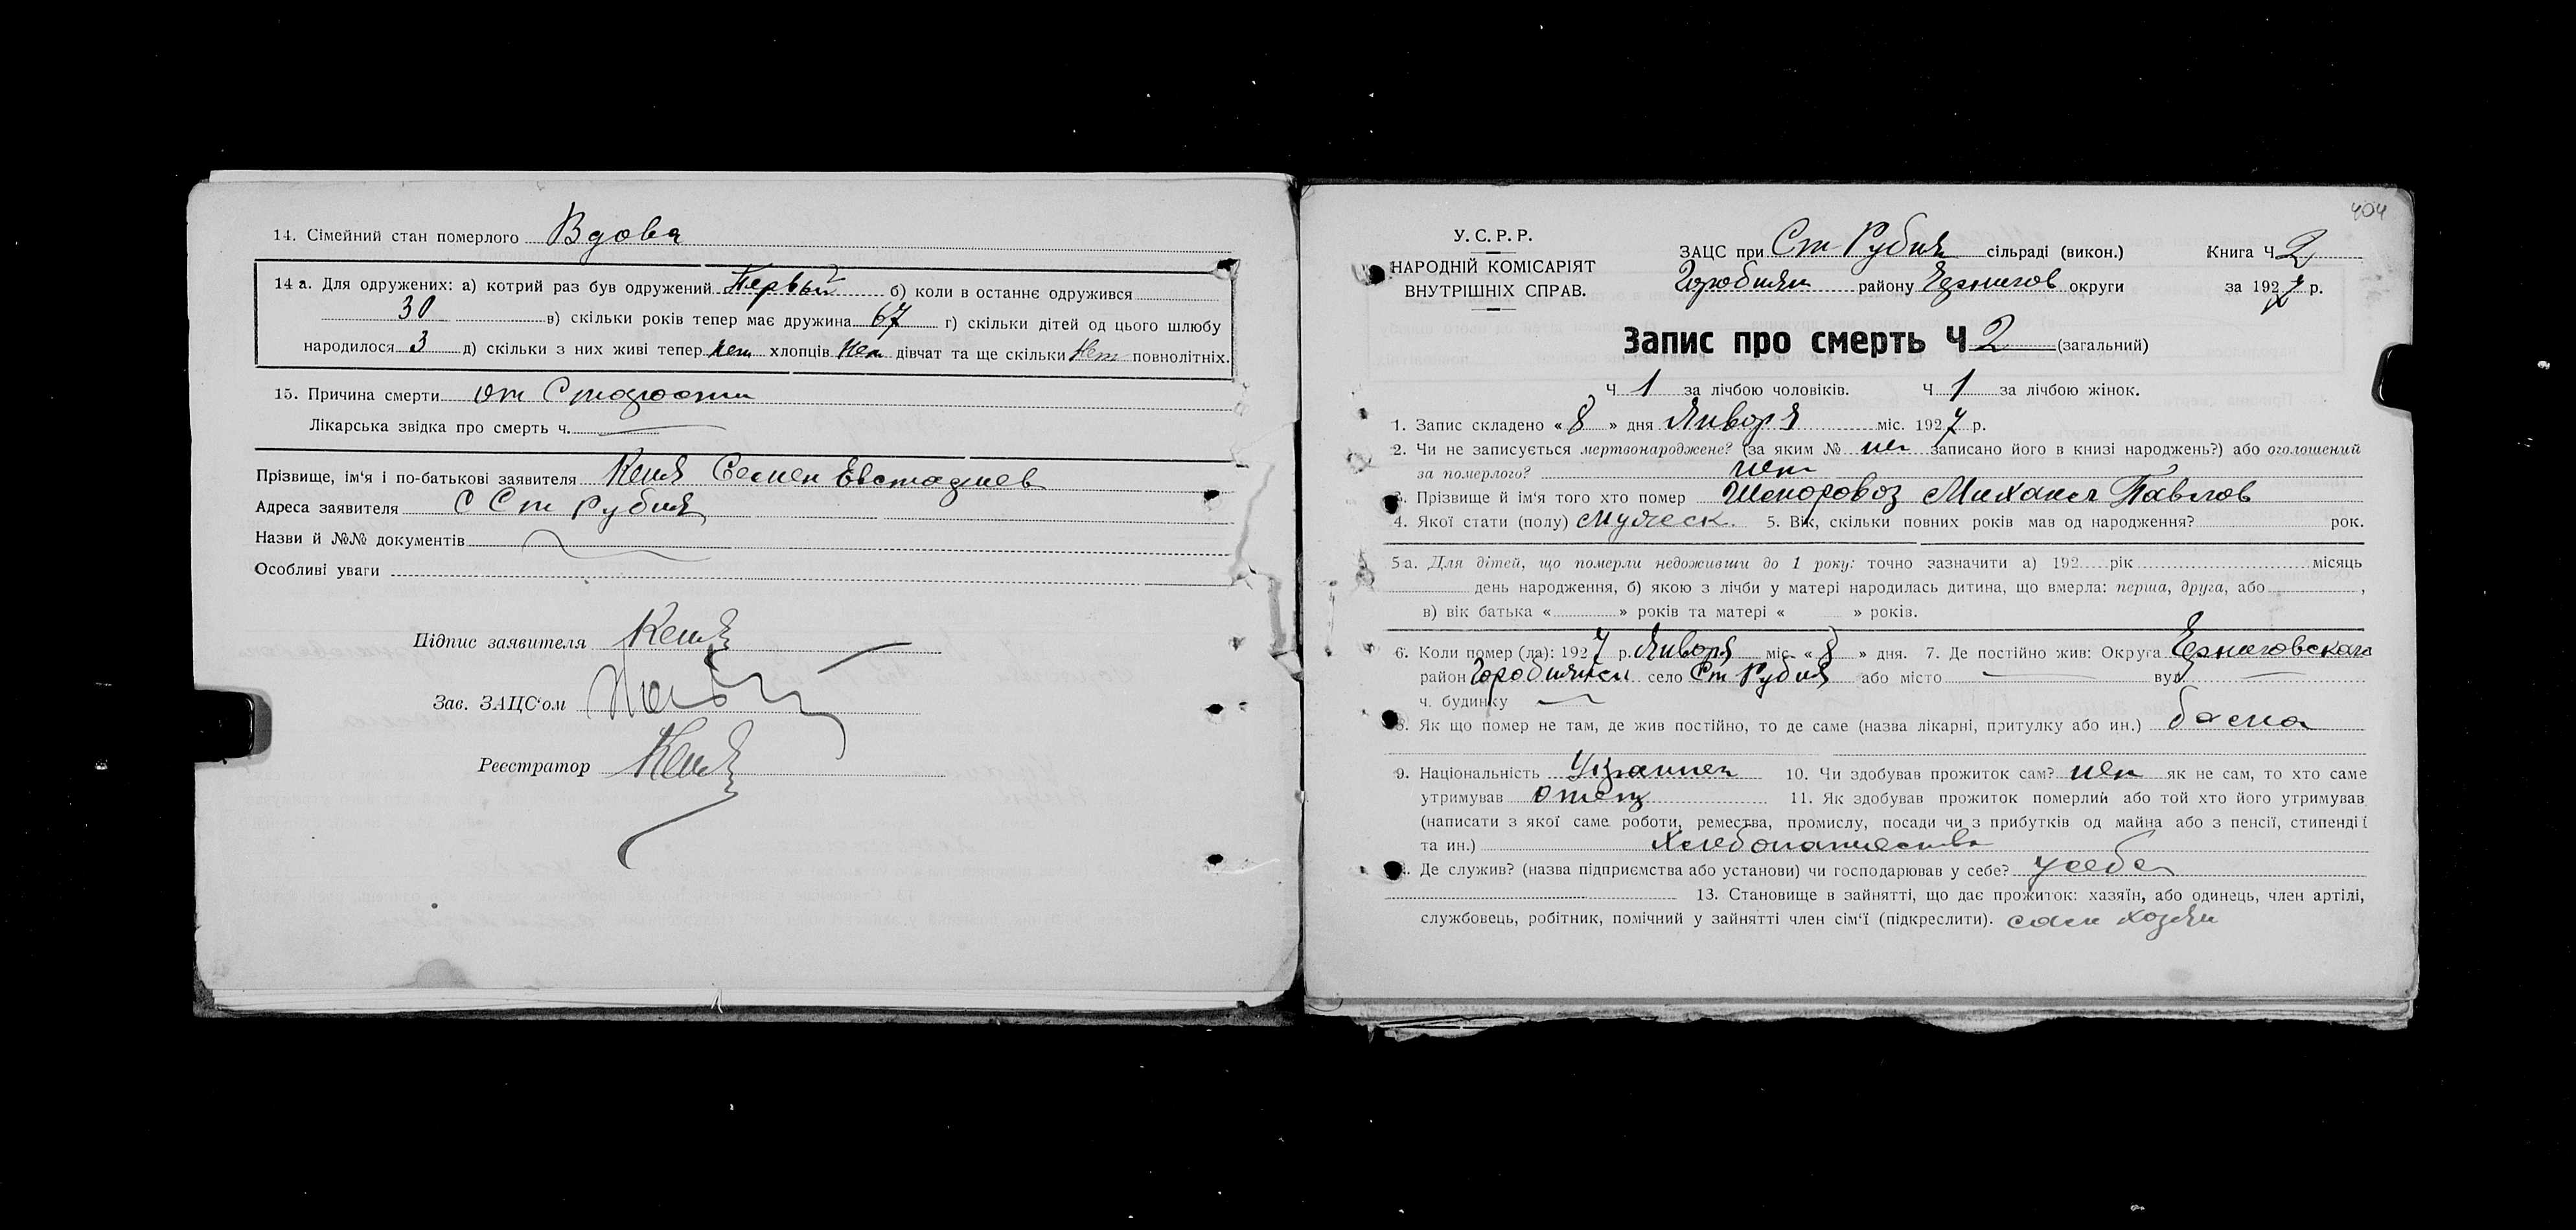 14. Сімейний стан померлого Вдова
14 а. Для одружених: а) котрий раз був одружений Первый б) коли в останнє одружився
30 в) скільки років тепер має дружина 67 г) скільки дітей од цього шлюбу
народилося 3 д) скільки з них живі тепер нет хлопців нет дівчат та ще скільки нет повнолітніх.
15. Причина смерти от Старости
Лікарська звідка про смерть ч.
Прізвище, ім'я і по-батькові заявителя Семен Евстафиев
Адреса заявителя С Ст Рудня
Назви й №№ документів
Особливі уваги
Підпис заявителя
Зав. ЗАЦС'ом
Реєстратор
404
У. С. Р. Р.
НАРОДНІЙ КОМІСАРІЯТ
ВНУТРІШНІХ СПРАВ.
ЗАЦС при Ст Рудня сільраді (викон.) Книга Ч 2
району Чернигов округи за 1927 р.
Запис про смерть Ч 2 (загальний)
Ч 1 за лічбою чоловіків. Ч 1 за лічбою жінок.
1. Запис складено « 8 » дня Января міс. 1927 р.
2. Чи не записується мертвонароджене? (за яким № нет записано його в книзі народжень?) або оголошений
за померлого? нет
3. Прізвище й ім'я того хто помер Михаил Павлов
4. Якої стати (полу) Мужеск. 5. Вік, скільки повних років мав од народження? рок.
5а. Для дітей, що померли недоживши до 1 року: точно зазначити а) 192 рік місяць
день народження, б) якою з лічби у матері народилась дитина, що вмерла: перша, друга, або ,
в) вік батька « » років та матері « » років.
6. Коли помер (ла): 1927 р. Января міс. « 8 » дня. 7. Де постійно жив: Округа Черниговского
район село Ст Рудня або місто вул.
ч. будинку
8. Як що помер не там, де жив постійно, то де саме (назва лікарні, притулку або ин.) дома
9. Національність Украинец 10. Чи здобував прожиток сам? нет як не сам, то хто саме
утримував отец 11. Як здобував прожиток померлий або той хто його утримував
(написати з якої саме роботи, ремества, промислу, посади чи з прибутків од майна або з пенсії, стипендії
та ин.) Хлебопашество
Де служив? (назва підприємства або установи) чи господарював у себе? у себе
13. Становище в зайнятті, що дає прожиток: хазяїн, або одинець, член артілі,
службовець, робітник, помічний у зайнятті член сім'ї (підкреслити). сам хозяин